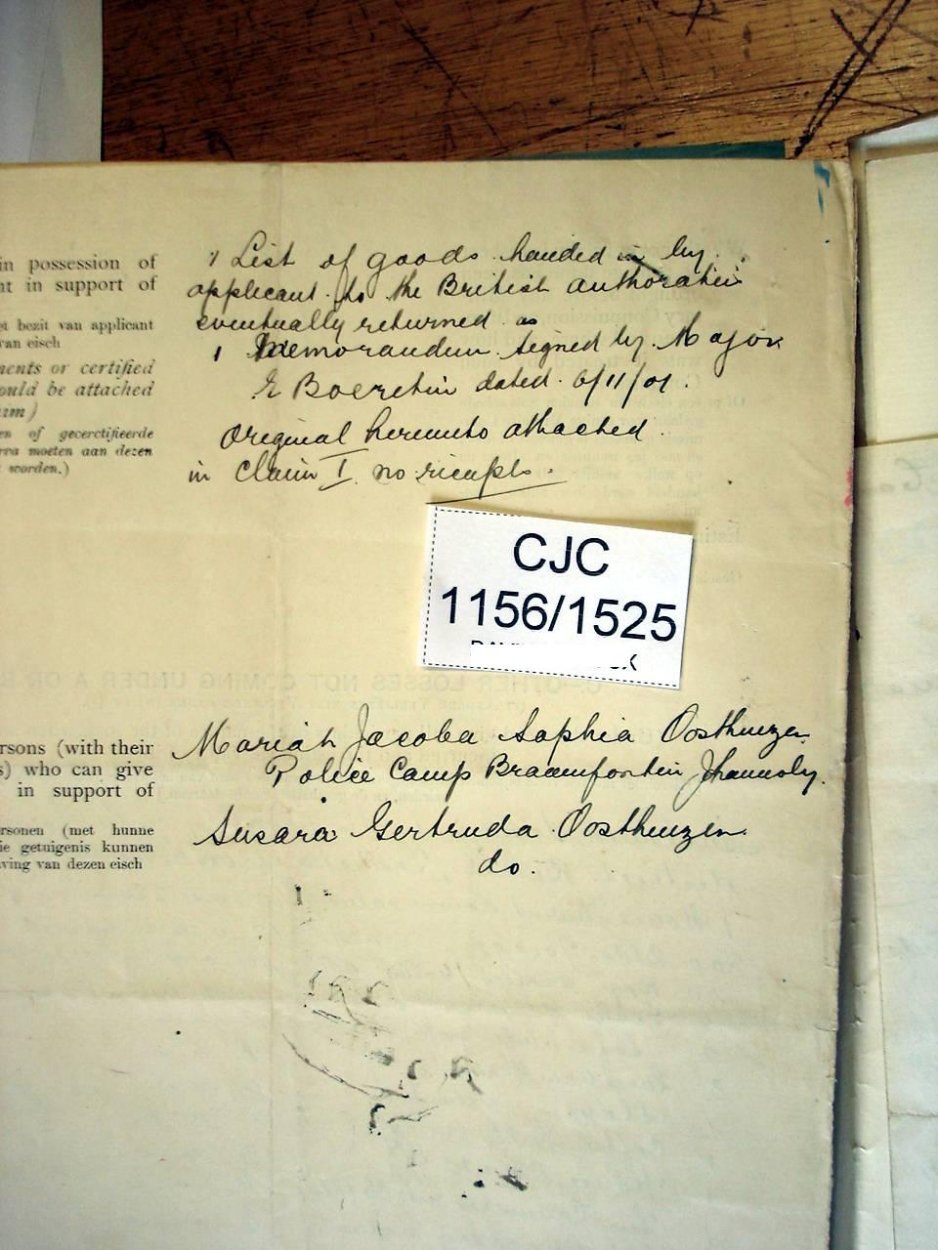 in possession of
nt in support of
bezit van applicant
van eisch
ments or certified
ould be attached
rm)
en of gecerctifieerde
rra moeten aan dezen
worden.)
1 List of goods handed in by
applicant to the British authoraties
eventually returned as
1 Memorandum signed by Major
dated 6/11/01.
Original hereunto attached
in Claim I no ricepts.
CJC
1156/1525
OTHER LOSSES NOT COMING UNDER A OR
rsons (with their
s) who can give
in support of
rsonen (met hunne
ie getuigenis kunnen
ving van dezen eisch
Mariah Jacoba Sophia Oosthuizen
Police Camp Braamfontein Jhannesbg.
Susara Gertruda Oosthuizen
do.